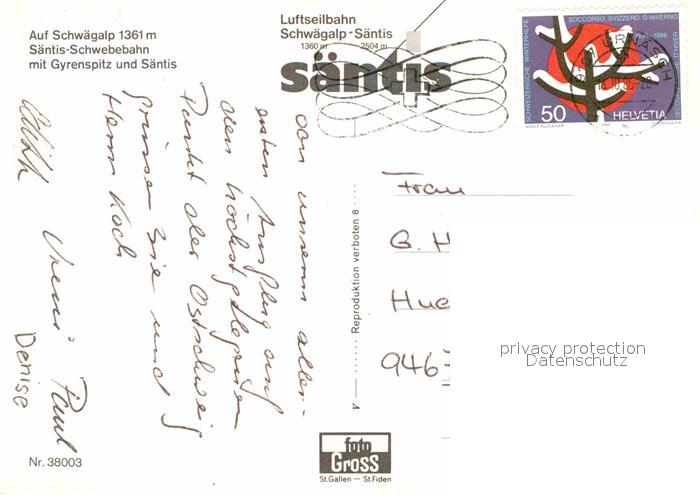 Auf Schwägalp 1361 m
Säntis-Schwebebahn
mit Gyrenspitz und Säntis
Luftseilbahn
Schwägalp-Säntis
1360 m 2504 m
säntis
SCHWEIZERISCHE WINTERHILFE
SOCCORSO SVIZZERO D'INVERNO
1936-1986
50
HELVETIA
von unserem aller-
ersten Ausflug auf
den höchstgelegenen
Punkt der Ostschweiz
grüssen Sie und
Herrn Koch
Vreni Paul
Denise
Frau
G. H
Hue
946
Reproduktion verboten 8
privacy protection
Datenschutz
foto
Gross
St.Gallen — St.Fiden
Nr. 38003